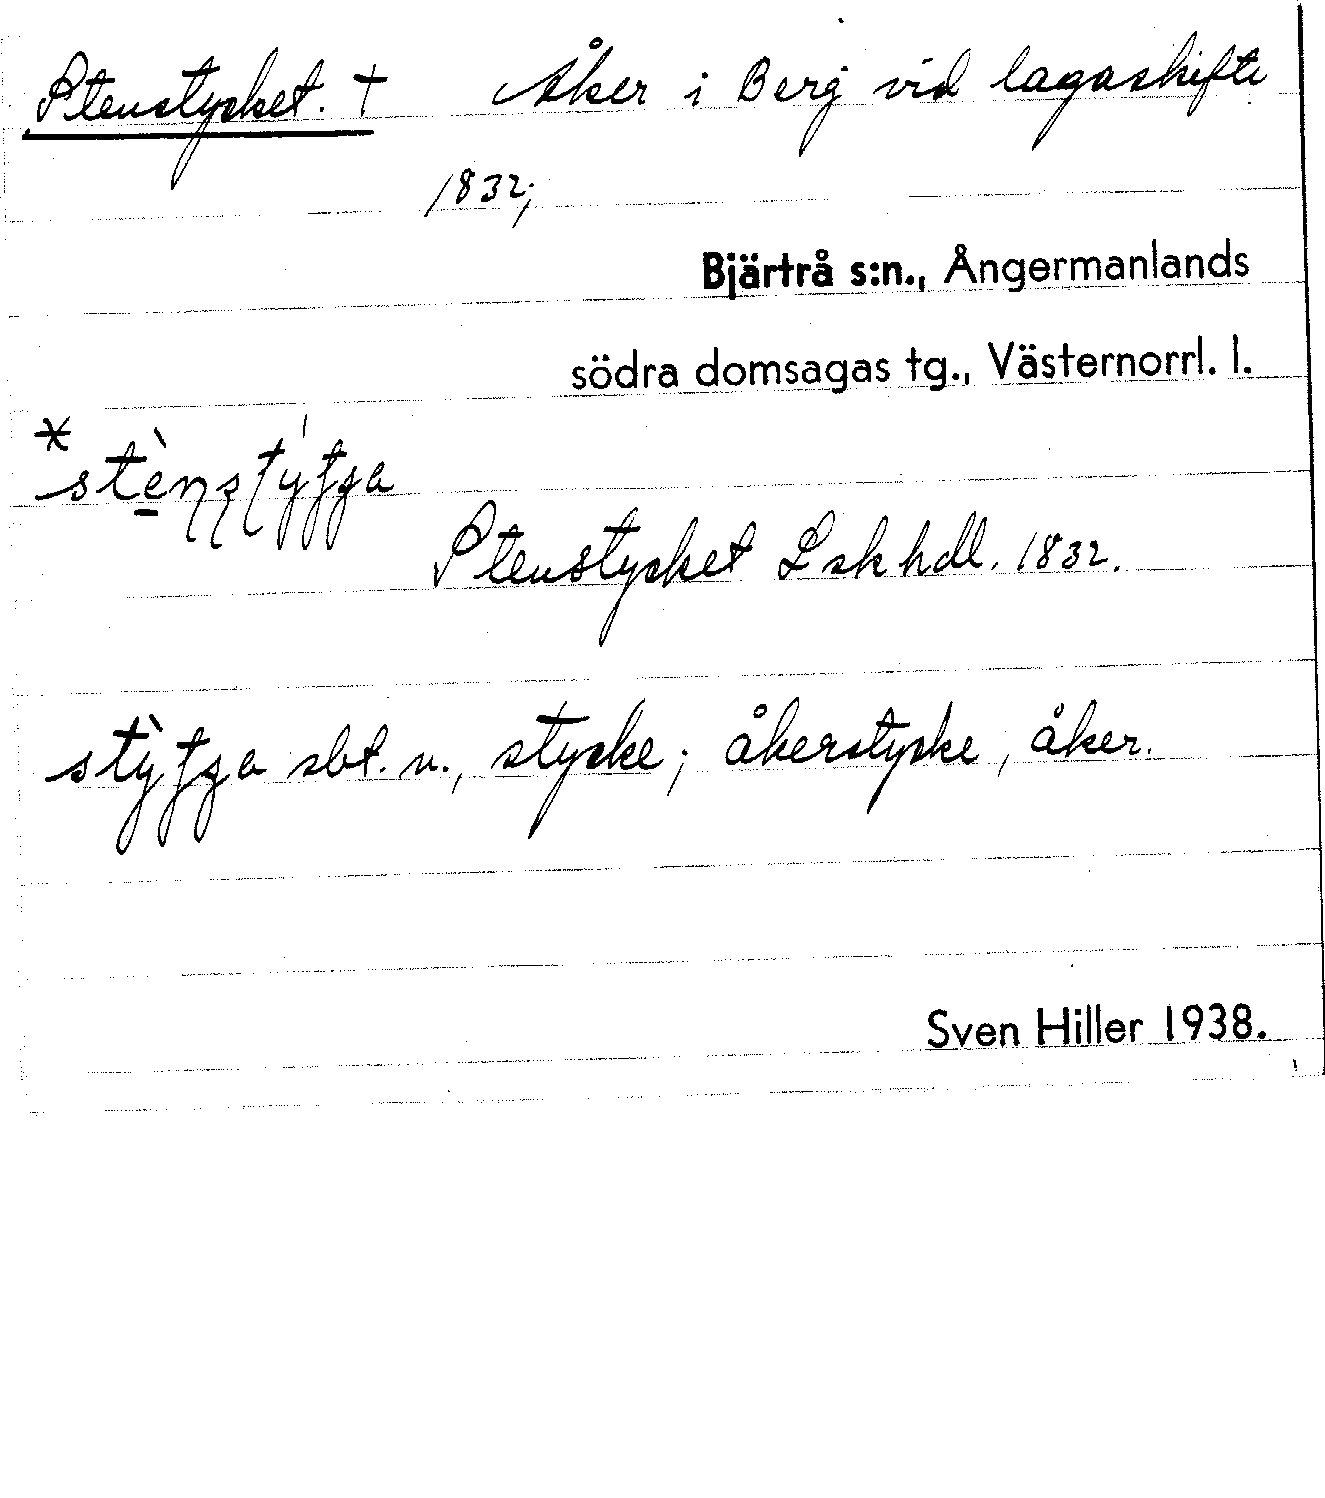 Stenstycket. † Åker i Berg vid lagaskifte
1832;
Bjärtrå s:n., Ångermanlands
södra domsagas tg., Västernorrl. l.
Stenstycket Lskhdl. 1832.
sbt. n., stycke; åkerstycke, åker.
Sven Hiller 1938.